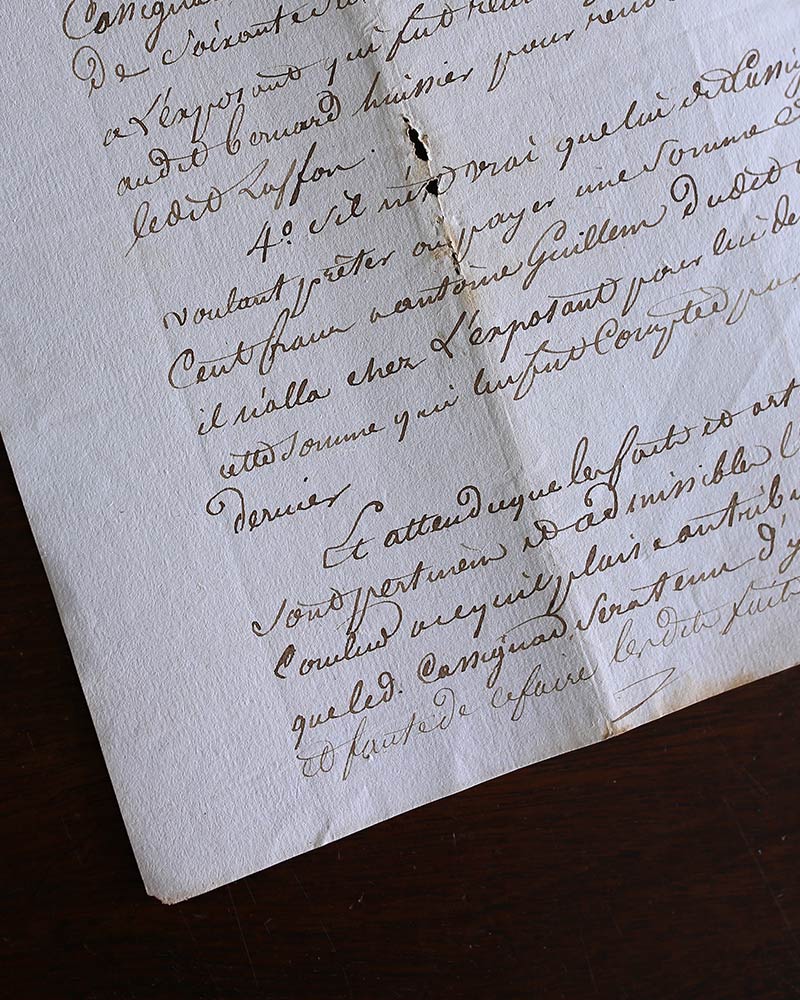 Cassignac
De Soixante
a L'exposant qui fut
audit bernard huissier pour
ledit Laffon.
4.º S'il n'est vrai que lui dit Cassig
voulant prêter ou payer une Somme
Cent francs a antoine Guillem Dudit
il n'alla chez L'exposant pour lui de
cette Somme qui lui fut Comptée par
dernier
Et attendu que les faits et art
Sont pertinens et admissibles
Conclud a ce qu'il plaise au tribu
que led. Cassignac Sera tenu d'y
et faute de ce faire lesdits faits